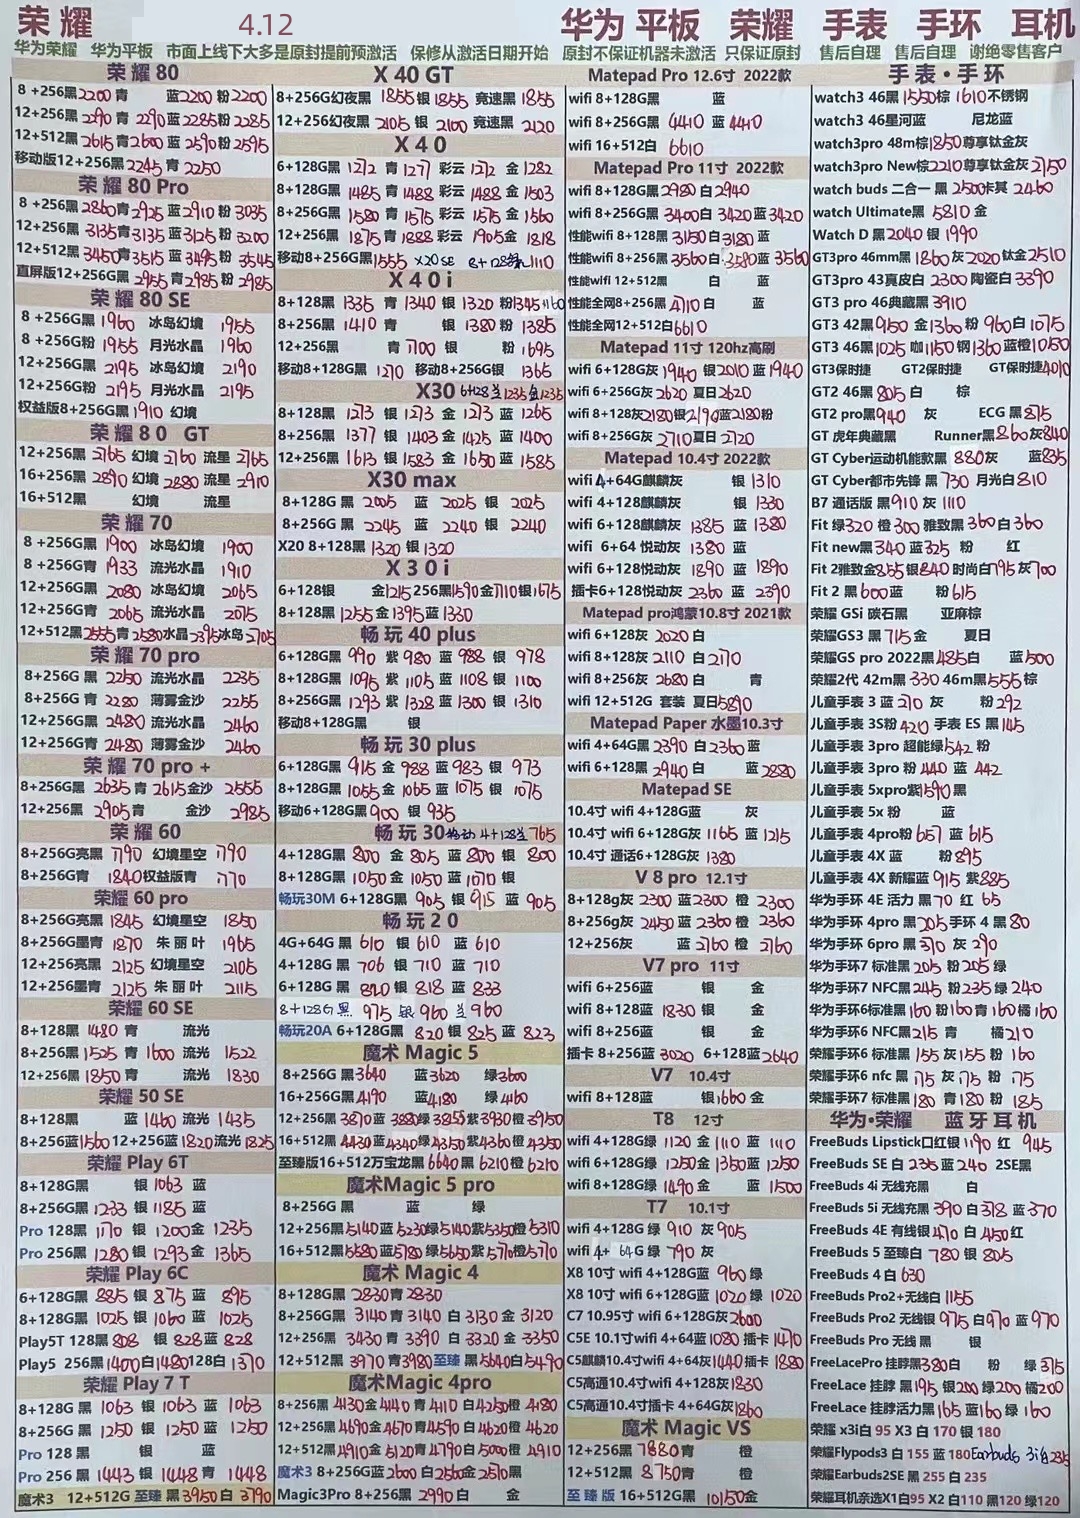 荣耀 4.12 华为 平板 荣耀 手表 手环 耳机
华为荣耀 华为平板 市面上线下大多是原封提前预激活 保修从激活日期开始 原封不保证机器未激活 只保证原封 售后自理 售后自理 谢绝零售客户
荣耀80
8+256黑2200 青 蓝2200 粉2200
12+256黑2290 青2290 蓝2285 粉2285
12+512黑2615 青2600 蓝2590 粉2595
移动版12+256黑2245 青2250
荣耀80 Pro
8+256黑2860 青2925 蓝2910 粉3035
12+256黑3135 青3135 蓝3125 粉3200
12+512黑3450 青3515 蓝3495 粉3545
直屏版12+256G黑2955 青2985 粉2985
荣耀80 SE
8+256G黑1960 冰岛幻境1955
8+256G粉1955 月光水晶1960
12+256G黑2195 冰岛幻境2190
12+256G粉2195 月光水晶2195
权益版8+256G黑1910 幻境
荣耀80 GT
12+256黑2765 幻境2760 流星2765
16+256黑2890 幻境2880 流星2910
16+512黑 幻境 流星
荣耀70
8+256G黑1900 冰岛幻境1900
8+256G青1933 流光水晶1910
12+256G黑2080 冰岛幻境2065
12+256G青2065 流光水晶2075
12+512黑2555 青2580 水晶2395 冰岛2705
荣耀70 pro
8+256G黑2250 流光水晶2235
8+256G青2280 薄雾金沙2255
12+256G黑2480 流光水晶2460
12+256G青2480 薄雾金沙2460
荣耀70 pro +
8+256G黑2635 青2615 金沙2555
12+256黑2905 青 金沙2985
荣耀60
8+256G亮黑1790 幻境星空1790
8+256G青1840 权益版青1770
荣耀60 pro
8+256G亮黑1845 幻境星空1850
8+256G墨青1870 朱丽叶1965
12+256亮黑2125 幻境星空2105
12+256墨青2125 朱丽叶2115
荣耀60 SE
8+128黑1480 青 流光
8+256黑1525 青1600 流光1522
12+256黑1850 青 流光1830
荣耀50 SE
8+128黑 蓝1460 流光1435
8+256蓝1560 12+256蓝1820 流光1825
荣耀 Play 6T
8+128G黑 银1063 蓝
8+256G黑1233 银1185 蓝
Pro 128黑1170 银1200 金1235
Pro 256黑1280 银1293 金1365
荣耀 Play 6C
6+128G黑885 银875 蓝895
8+128G黑1025 银1060 蓝1025
Play5T 128黑808 银828 蓝828
Play5 256黑1400 白1480 128白1370
荣耀 Play 7T
8+128G黑1063 银1063 蓝1063
8+256G黑1250 银1250 蓝1250
Pro 128黑 银 蓝
Pro 256黑1443 银1448 青1448
魔术3 12+512G 至臻 黑3950 白3790
X40 GT
8+256G幻夜黑1855 银1855 竞速黑1855
12+256幻夜黑2105 银2100 竞速黑2120
X40
6+128G黑1272 青1277 彩云1272 金1282
8+128G黑1485 青1488 彩云1488 金1503
8+256G黑1580 青1575 彩云1575 金1560
12+256黑1875 青1888 彩云1905 金1818
移动8+256G黑1555 X20SE 8+128黑1110
X40i
8+128黑1335 青1340 银1320 粉1345
8+256黑1410 青 银1380 粉1385
12+256黑 青1700 银 粉1695
移动8+128G黑1270 移动8+256G银1365
X30 6+128兰1235金1235
8+128黑1273 银1273 金1273 蓝1265
8+256黑1377 银1403 金1425 蓝1400
12+256黑1613 银1583 金1650 蓝1585
X30 max
8+128G黑2005 蓝2025 银2025
8+256G黑2245 蓝2240 银2240
X20 8+128黑1320 银1320
X30i
6+128银 金1215 256黑1590 金1710 银1675
8+128黑1255 金1395 蓝1330
畅玩40 plus
6+128G黑990 紫980 蓝988 银978
8+128G黑1095 紫1105 蓝1108 银1100
8+256G黑1293 紫1328 蓝1300 银1310
移动8+128G黑 银
畅玩30 plus
6+128G黑915 金988 蓝983 银973
8+128G黑1055 金1065 蓝1075 银1075
移动6+128G黑900 银935
畅玩30 移动4+128兰765
4+128G黑800 金805 蓝800 银800
8+128G黑1050 金1050 蓝1070 银
畅玩30M 6+128G黑905 银915 蓝905
畅玩20
4G+64G黑610 银610 蓝610
4+128G黑706 银710 蓝710
6+128G黑820 银818 蓝833
8+128G黑975 银960 兰960
畅玩20A 6+128G黑820 银825 蓝823
魔术 Magic 5
8+256G黑3640 蓝3620 绿3600
16+256G黑4190 蓝4180 绿4160
12+256黑3870 蓝3880 绿3855 紫3930 橙3950
16+512黑4430 蓝4340 绿4350 紫4360 橙4350
至臻版16+512万宝龙黑6640 黑6210 橙6210
魔术Magic 5 pro
8+256G黑 蓝 绿
12+256黑5140 蓝5230 绿5140 紫5350 橙5310
16+512黑5580 蓝5780 绿5650 紫5710 橙5710
魔术 Magic 4
8+128G黑2830 青2830
8+256G黑3140 青3140 白3130 金3120
12+256黑3430 青3390 白3320 金3350
12+512黑3970 青3980 至臻 黑5640 白5490
魔术Magic 4pro
8+256黑4130 金4140 青4110 白4250 橙4180
12+256黑4690 金4670 青4590 白4620 橙4620
12+512黑4910 金5120 青4790 白5000 橙4910
魔术3 8+256G蓝2600 白2560 金2570 黑
Magic3Pro 8+256黑2990 白 金
Matepad Pro 12.6寸 2022款
wifi 8+128G黑 蓝
wifi 8+256G黑4410 蓝4410
wifi 16+512白6610
Matepad Pro 11寸 2022款
wifi 8+128G黑2980 白2940
wifi 8+256G黑3400 白3420 蓝3420
性能wifi 8+128黑3150 白3180 蓝
性能wifi 8+256黑3560 白3580 蓝3560
性能wifi 12+512黑 白 蓝
性能全网8+256黑4710 白 蓝
性能全网12+512白6610
Matepad 11寸 120hz高刷
wifi 6+128G灰1940 银2010 蓝1940
wifi 6+256G灰2620 夏日2620
wifi 8+128灰2180 银2190 蓝2180 粉
wifi 8+256G灰2710 夏日2720
Matepad 10.4寸 2022款
wifi 4+64G麒麟灰 银1310
wifi 4+128麒麟灰 银1330
wifi 6+128麒麟灰1385 蓝1380
wifi 6+64悦动灰1380 蓝
wifi 6+128悦动灰1890 蓝1890
插卡6+128悦动灰2360 蓝2390
Matepad pro鸿蒙10.8寸 2021款
wifi 6+128灰2020 白
wifi 8+128灰2110 白2170
wifi 8+256灰2680 白 青
wifi 12+512G 套装 夏日5890
Matepad Paper 水墨10.3寸
wifi 4+64G黑2390 白2360 蓝
wifi 6+128黑2940 白 蓝2880
Matepad SE
10.4寸 wifi 4+128G蓝 灰
10.4寸 wifi 6+128G灰1165 蓝1215
10.4寸 通话6+128G灰1380
V8 pro 12.1寸
8+128g灰2300 蓝2300 橙2300
8+256g灰2450 蓝2360 橙2360
12+256灰 蓝2760 橙2760
V7 pro 11寸
wifi 6+256蓝 银 金
wifi 8+128蓝1830 银 金
wifi 8+256蓝 银 金
插卡 8+256蓝3020 6+128蓝2640
V7 10.4寸
wifi 8+128蓝 银1660 金
T8 12寸
wifi 4+128G绿1120 金1110 蓝1110
wifi 6+128G绿1250 金1350 蓝1250
wifi 8+128G绿1490 金 蓝1500
T7 10.1寸
wifi 4+128G绿910 灰905
wifi 4+64G绿790 灰
X8 10寸 wifi 4+128G蓝960 绿
X8 10寸 wifi 6+128G蓝1020 绿1020
C7 10.95寸 wifi 6+128G灰2600
C5E 10.1寸wifi 4+64蓝1080 插卡1470
C5麒麟10.4寸wifi 4+64灰1440 插卡1880
C5高通10.4寸wifi 4+128灰1830
C5高通10.4寸插卡 4+64G灰1860
魔术 Magic VS
12+256黑7880 青 橙
12+512黑8750 青 橙
至臻版 16+512G黑10150 金
手表·手环
watch3 46黑1550 棕1610 不锈钢
watch3 46星河蓝 尼龙蓝
watch3pro 48m棕1850 尊享钛金灰
watch3pro New棕2210 尊享钛金灰2750
watch buds 二合一 黑2500 卡其2460
watch Ultimate黑5810 金
Watch D 黑2040 银1990
GT3pro 46mm黑1860 灰2020 钛金2510
GT3pro 43真皮白2300 陶瓷白3390
GT3 pro 46典藏黑3910
GT3 42黑950 金1360 粉960 白1075
GT3 46黑1025 咖1150 钢1360 蓝橙1050
GT3保时捷 GT2保时捷 GT保时捷4010
GT2 46黑805 白 棕
GT2 pro黑940 灰 ECG 黑875
GT 虎年典藏黑 Runner黑860 灰840
GT Cyber运动机能款黑880 灰 蓝835
GT Cyber都市先锋 黑730 月光白810
B7 通话版 黑910 灰1110
Fit 绿320 橙300 雅致黑360 白360
Fit new黑340 蓝325 粉 红
Fit 2雅致金855 银840 时尚白795 灰700
Fit 2 黑600 蓝 粉615
荣耀 GSi 碳石黑 亚麻棕
荣耀GS3 黑715 金 夏日
荣耀GS pro 2022黑485 白 蓝500
荣耀2代 42m黑330 46m黑555 棕
儿童手表 3 蓝270 灰 粉292
儿童手表 3S粉420 手表 ES 黑145
儿童手表 3pro 超能绿542 粉
儿童手表 3pro 粉440 蓝442
儿童手表 5xpro紫1590 黑
儿童手表 5x 粉 蓝
儿童手表 4pro粉657 蓝615
儿童手表 4X 蓝 粉895
儿童手表 4X 新耀蓝915 紫885
华为手环 4E 活力 黑70 红65
华为手环 4pro 黑205 手环 4 黑80
华为手环 6pro 黑370 灰290
华为手环7 标准黑205 粉205 绿
华为手环7 NFC黑245 粉235 绿240
华为手环6标准黑160 粉160 青160 橘160
华为手环6 NFC黑215 青 橘210
荣耀手环6 标准黑155 灰155 粉160
荣耀手环6 nfc 黑175 灰175 粉175
荣耀手环7 标准黑180 青180 粉185
华为·荣耀 蓝牙耳机
FreeBuds Lipstick口红银1190 红945
FreeBuds SE 白235 蓝240 2SE黑
FreeBuds 4i 无线充黑 白
FreeBuds 5i 无线充黑390 白318 蓝370
FreeBuds 4E 有线银470 白450 红
FreeBuds 5 至臻白780 银805
FreeBuds 4 白630
FreeBuds Pro2+无线白1155
FreeBuds Pro2 无线银975 白970 蓝970
FreeBuds Pro 无线 黑 银
FreeLacePro 挂脖黑380 白 粉 绿375
FreeLace 挂脖 黑195 银200 绿200 橘200
FreeLace 挂脖活力黑165 蓝160 绿160
荣耀 x3i白 95 X3 白 170 银 180
荣耀Flypods3 白 155 蓝 180 Earbuds 3i白235
荣耀Earbuds2SE 黑 255 白 235
荣耀耳机亲选X1白95 X2 白110 黑120 绿120